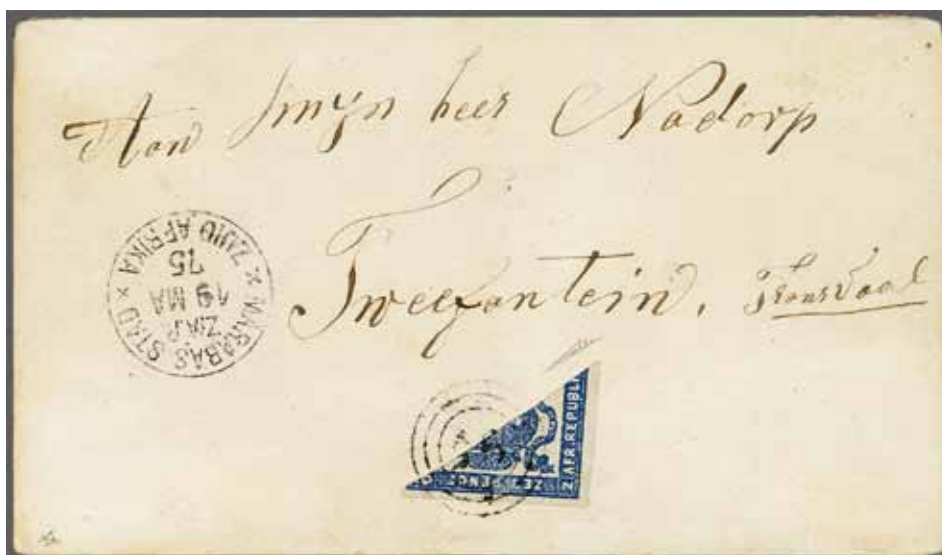 Aan mijn heer Nadorp
Tweefontein, Transvaal
MARABAS STAD × ZUID AFRIKA ×
Z.A.R.
19 MA
75
Z AFR. REPUBLI
ZES PENC